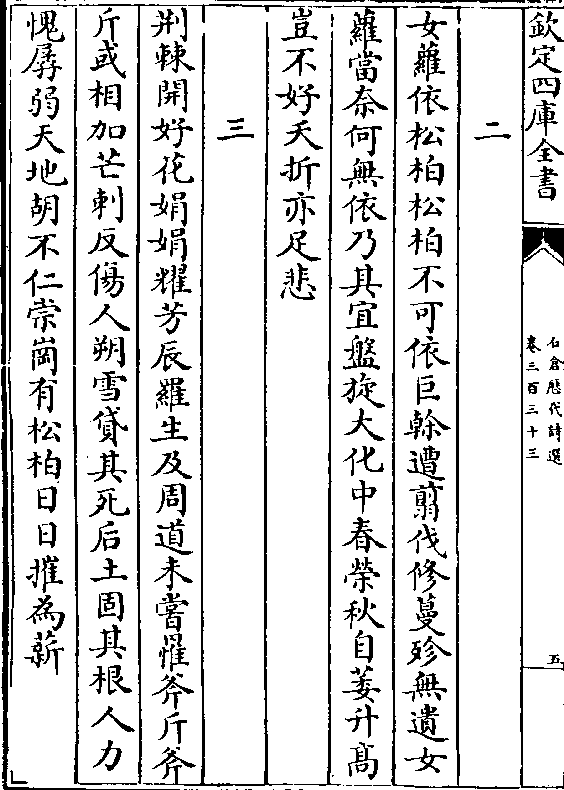 欽定四庫全書
石倉歷代詩選
卷三百三十三
五
二
女蘿依松柏松柏不可依巨榦遭翦伐修蔓殄無遺女
蘿當奈何無依乃其宜盤旋大化中春榮秋自萎升髙
豈不好夭折亦足悲
三
荆棘開好花娟娟耀芳辰羅生及周道未嘗罹斧斤斧
斤或相加芒刺反傷人朔雪貸其死后土固其根人力
愧孱弱天地胡不仁崇岡有松柏日日摧為薪